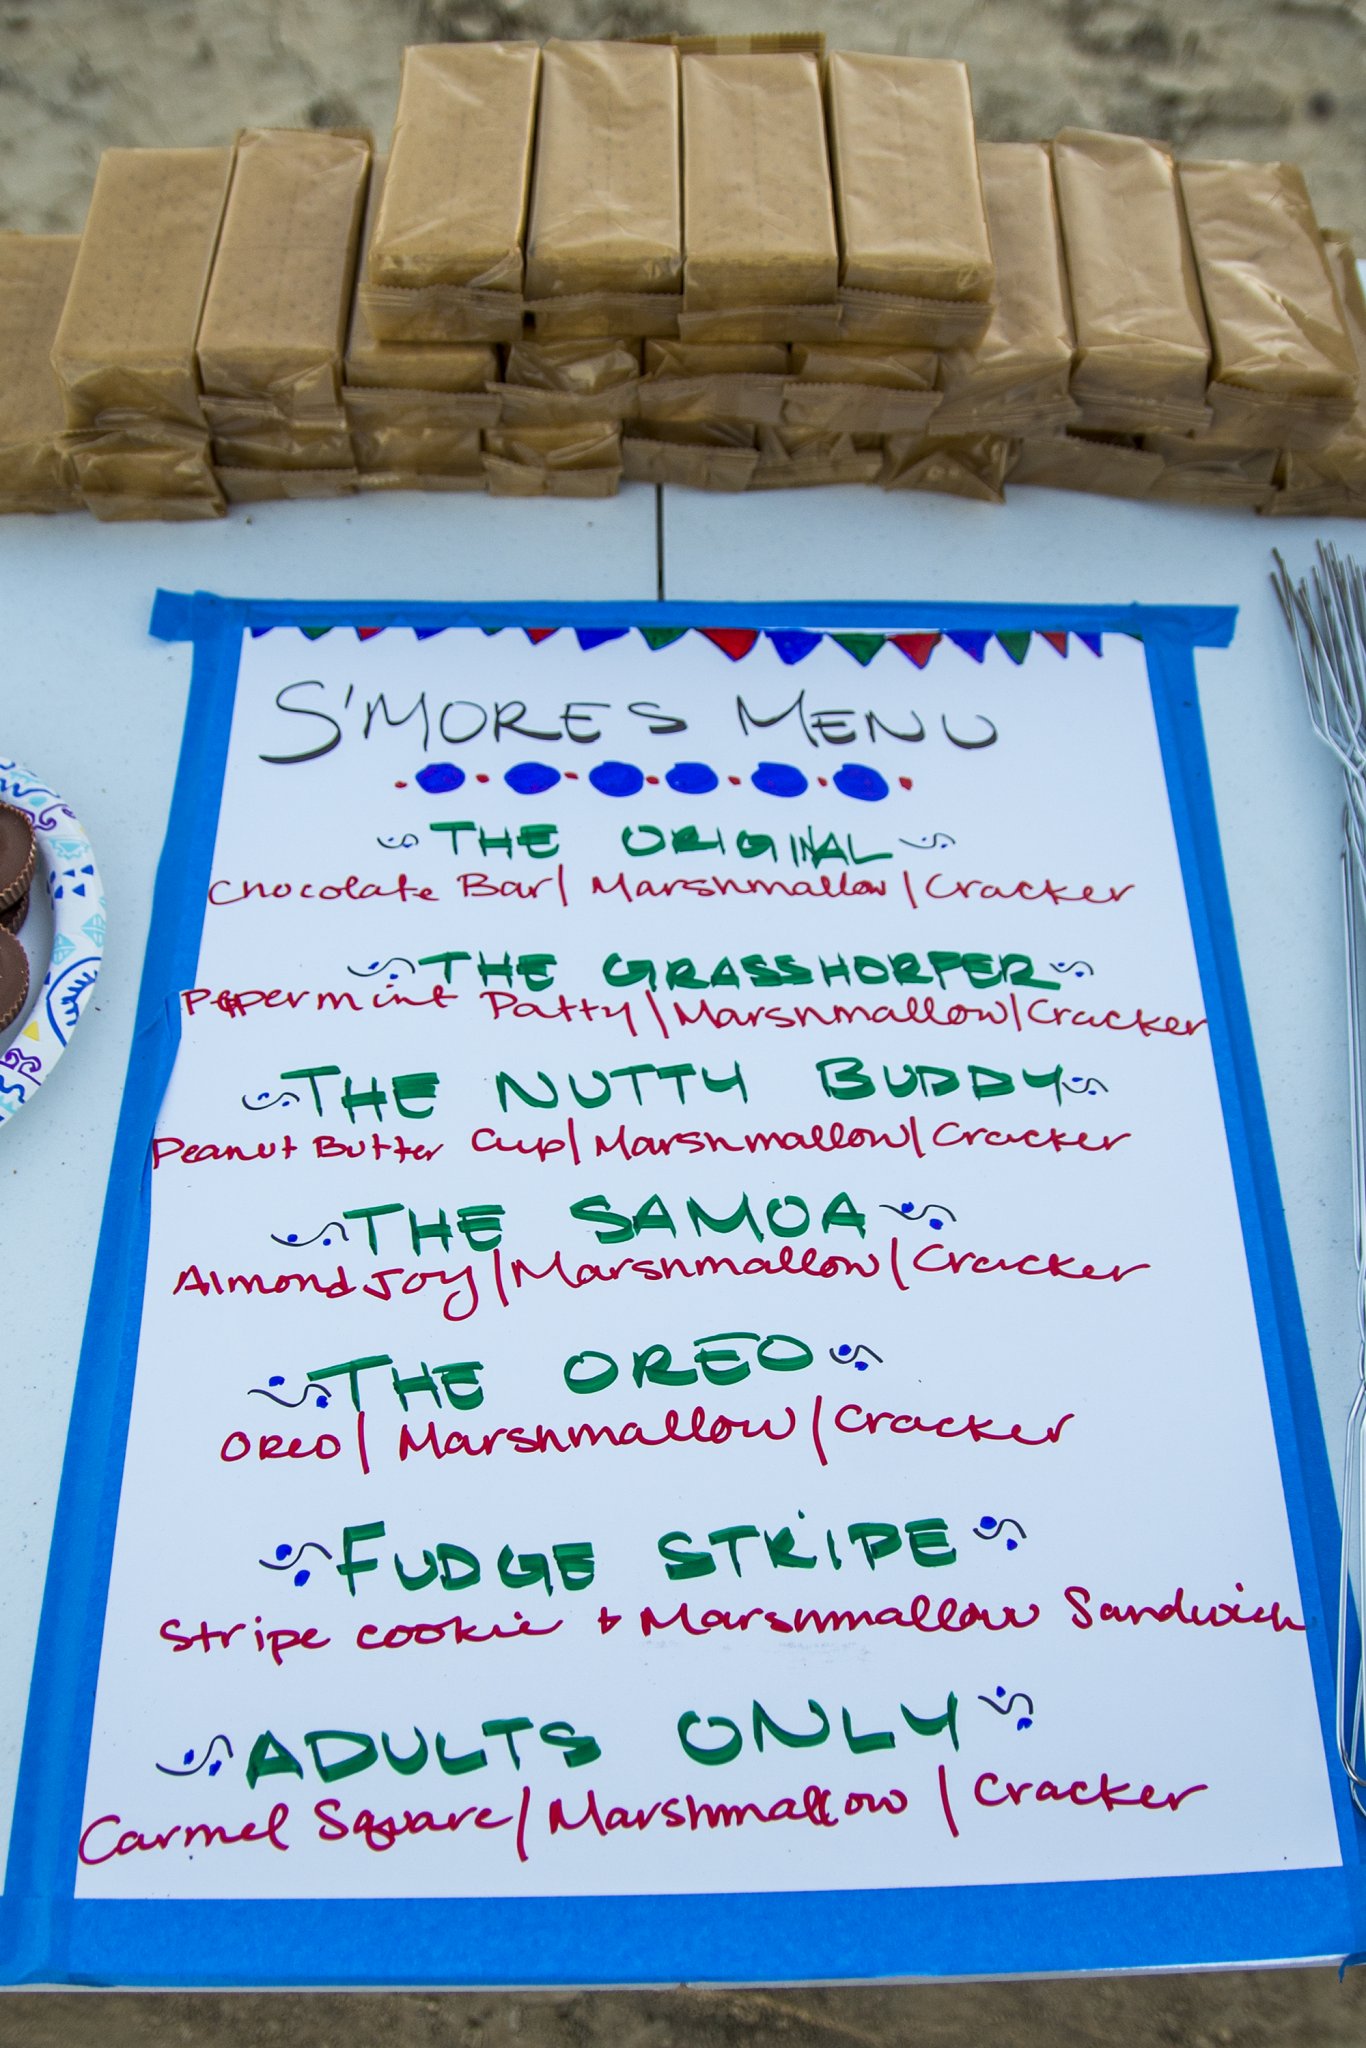 S'MORES MENU
THE ORIGINAL
Chocolate Bar/ Marshmallow/Cracker
THE GRASSHORPER
Peppermint Patty/Marshmallow/Cracker
THE NUTTY BUDDY
Peanut Butter Cup/Marshmallow/Cracker
THE SAMOA
Almond Joy/Marshmallow/Cracker
THE OREO
OREO/Marshmallow/Cracker
FUDGE STRIPE
Stripe cookie + Marshmallow Sandwich
ADULTS ONLY
Carmel Square/Marshmallow/Cracker